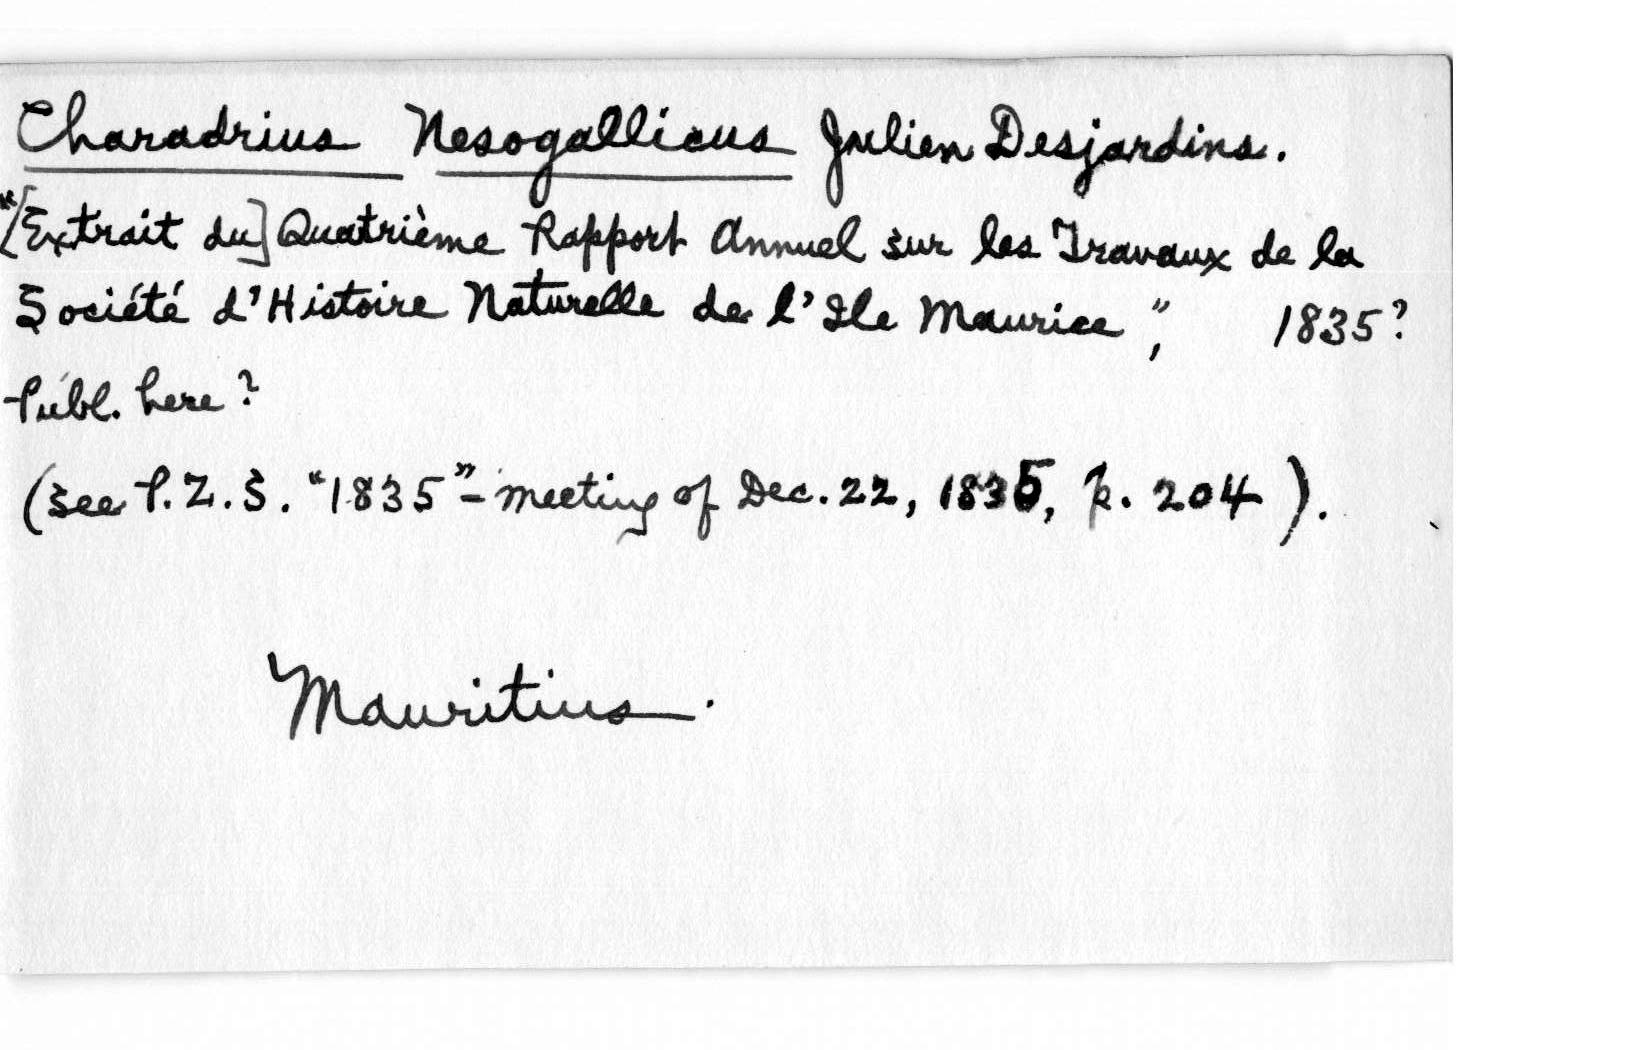 Charadrius Nesogallicus Julien Desjardins.
"[Extrait du] Quatrième Rapport Annuel sur les Travaux de la
Société d'Histoire Naturelle de l'Ile Maurice", 1835?
Publ. here?
(See P.Z.S. "1835" - meeting of Dec. 22, 1835, p. 204).
Mauritius.